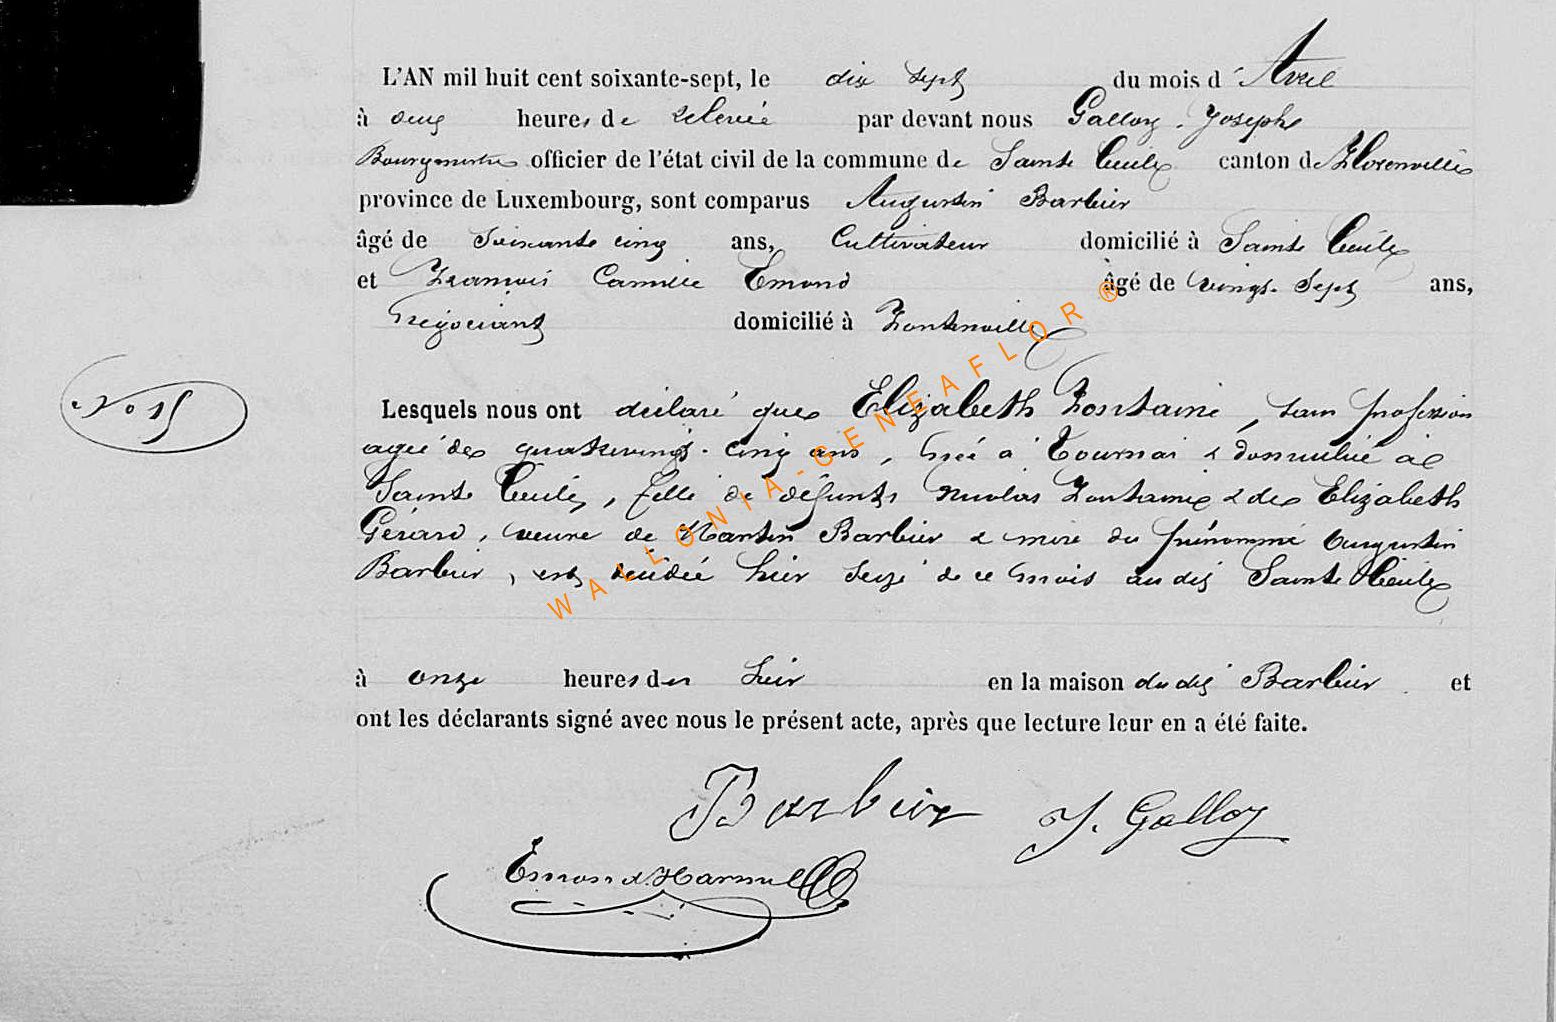 L'AN mil huit cent soixante-sept, le dix sept du mois d'Avril
à deux heures de relevée par devant nous Galloy Joseph
Bourgmestre officier de l'état civil de la commune de Sainte Cécile canton de Florenville
province de Luxembourg, sont comparus Augustin Barbier
âgé de Soixante cinq ans, Cultivateur domicilié à Sainte Cécile
et François Camille Emond âgé de vingt-sept ans,
Négociant domicilié à Fontenoille
No 15
Lesquels nous ont déclaré que Elizabeth Fontaine, sans profession
agée de quatrevingt-cinq ans, née à Tournai & domiciliée à
Sainte Cécile, fille de défunts Nicolas Fontaine & de Elizabeth
Gérard, veuve de Martin Barbier & mère du prénommé Augustin
Barbier, est décédée hier seize de ce mois au dit Sainte Cécile
à onze heures du soir en la maison du dit Barbier et
ont les déclarants signé avec nous le présent acte, après que lecture leur en a été faite.
Barbier J. Galloy
Emond
WALLONIA-GENEAFLOR ®